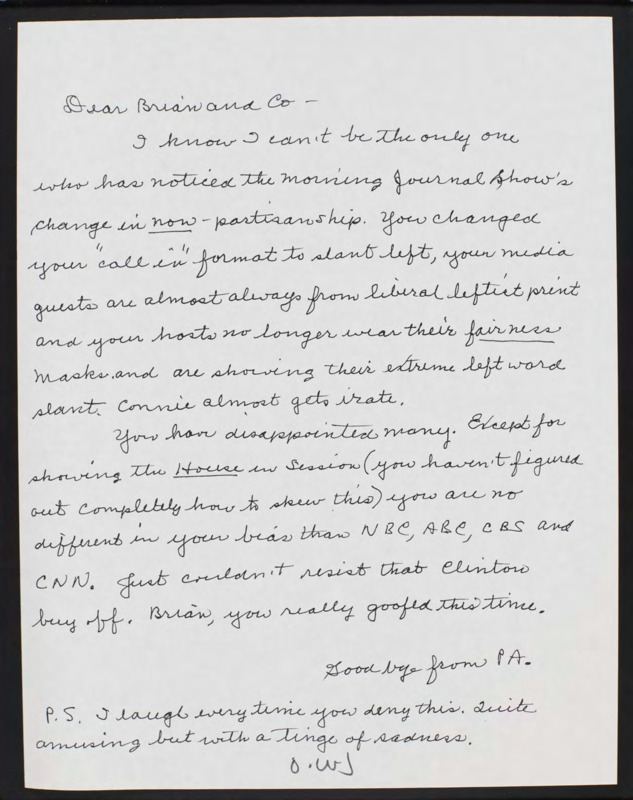 Dear Brian and Co –
I know I can't be the only one
who has noticed the morning Journal Show's
change in non-partisanship. You changed
your "call in" format to slant left, your media
guests are almost always from liberal leftist print
and your hosts no longer wear their fairness
masks and are showing their extreme left word
slant. Connie almost gets irate.
You have disappointed many. Except for
showing the House in Session (you haven't figured
out completely how to skew this) you are no
different in your bias than NBC, ABC, CBS and
CNN. Just couldn't resist that Clinton
buy off. Brian, you really goofed this time.
Good bye from PA.
P.S. I laugh every time you deny this. Quite
amusing but with a tinge of sadness.